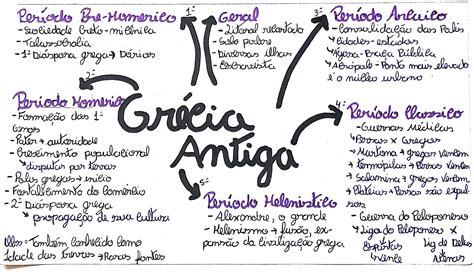 Grécia
Antiga
Geral
- Litoral recortado
- Solo pobre
- Diversas ilhas
- Escravista
1ª
Período Pré-Homérico
- Sociedade creto-micênica
- Talassocracia
- 1ª Diáspora grega → Dórios
2ª
Período Homérico
- Formação dos 1ºs
Genos
- Pater → autoridade
- Crescimento populacional
→ disputas por terras
- Polis gregas → início
- Fortalecimento do comércio
- 2ª Diáspora grega
→ propagação de sua cultura
Obs: Também conhecido como
Idade das trevas → Poucas fontes
3ª
Período Arcaico
- Consolidação das Polis
→ Cidades-estados
- Ágora - Praça Pública
- Acrópole - Ponto mais elevado
e o núcleo urbano
4ª
Período Clássico
- Guerras Médicas
→ Persas x Gregos
→ Maratona → gregos vencem
→ Termópilas → Persas vencem
→ Salamina → gregos vencem
→ Platéias → Persas são expul-
sos
- Guerra do Peloponeso
→ Liga do Peloponeso x Liga de Delos
Espartas Atenas
→ vence
5ª
Período Helenístico
- Alexandre, o grande
- Helenismo → fusão, ex-
pansão da civilização grega